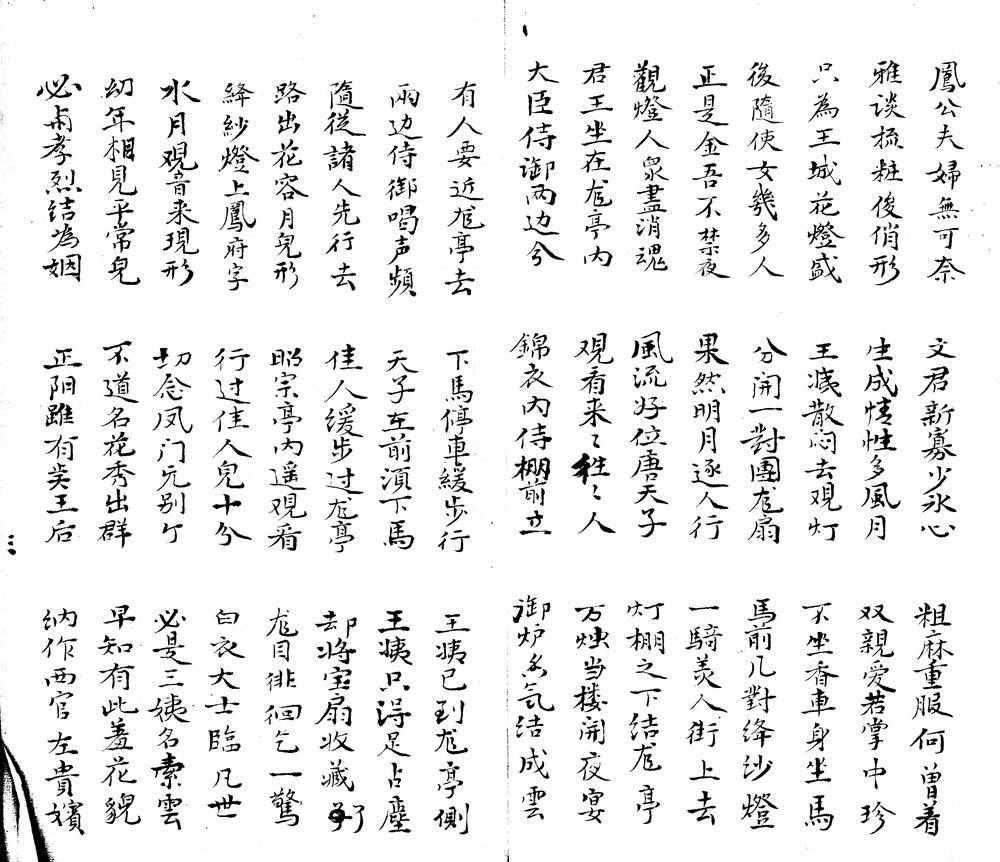 鳳公夫婦無可奈 文君新寡少氷心 粗麻重服何曾着
雅谈梳粧俊俏形 生成情性多風月 双親愛若掌中珍
只為王城花燈盛 王姨散闷去观灯 不坐香車身坐馬
後隨使女幾多人 分開一對團尨扇 馬前几對绛纱燈
正是金吾不禁夜 果然明月逐人行 一騎美人街上去
觀燈人衆盡消魂 風流好位唐天子 灯棚之下结尨亭
君王坐在尨亭内 观看来〻往〻人 万烛当楼開夜宴
大臣侍御两边分 錦衣内侍棚前立 御炉香氛结成雲
有人要近尨亭去 下馬停車緩步行 王姨已到尨亭側
兩边侍御喝声頻 天子在前須下馬 王姨只得足占塵
隨從諸人先行去 佳人缓步过尨亭 却将宝扇收藏了
路出花容月皃形 昭宗亭内遥观看 尨目徘徊乞一驚
絳紗燈上鳳府字 行过佳人皃十分 白衣大士臨凡世
水月观音来现形 切念凤门无别个 必是三姨名素雲
幼年相見平常皃 不道名花秀出群 早知有此羞花貌
必甬孝烈结為姻 正阴雖有吴王后 纳作西宫左貴嬪